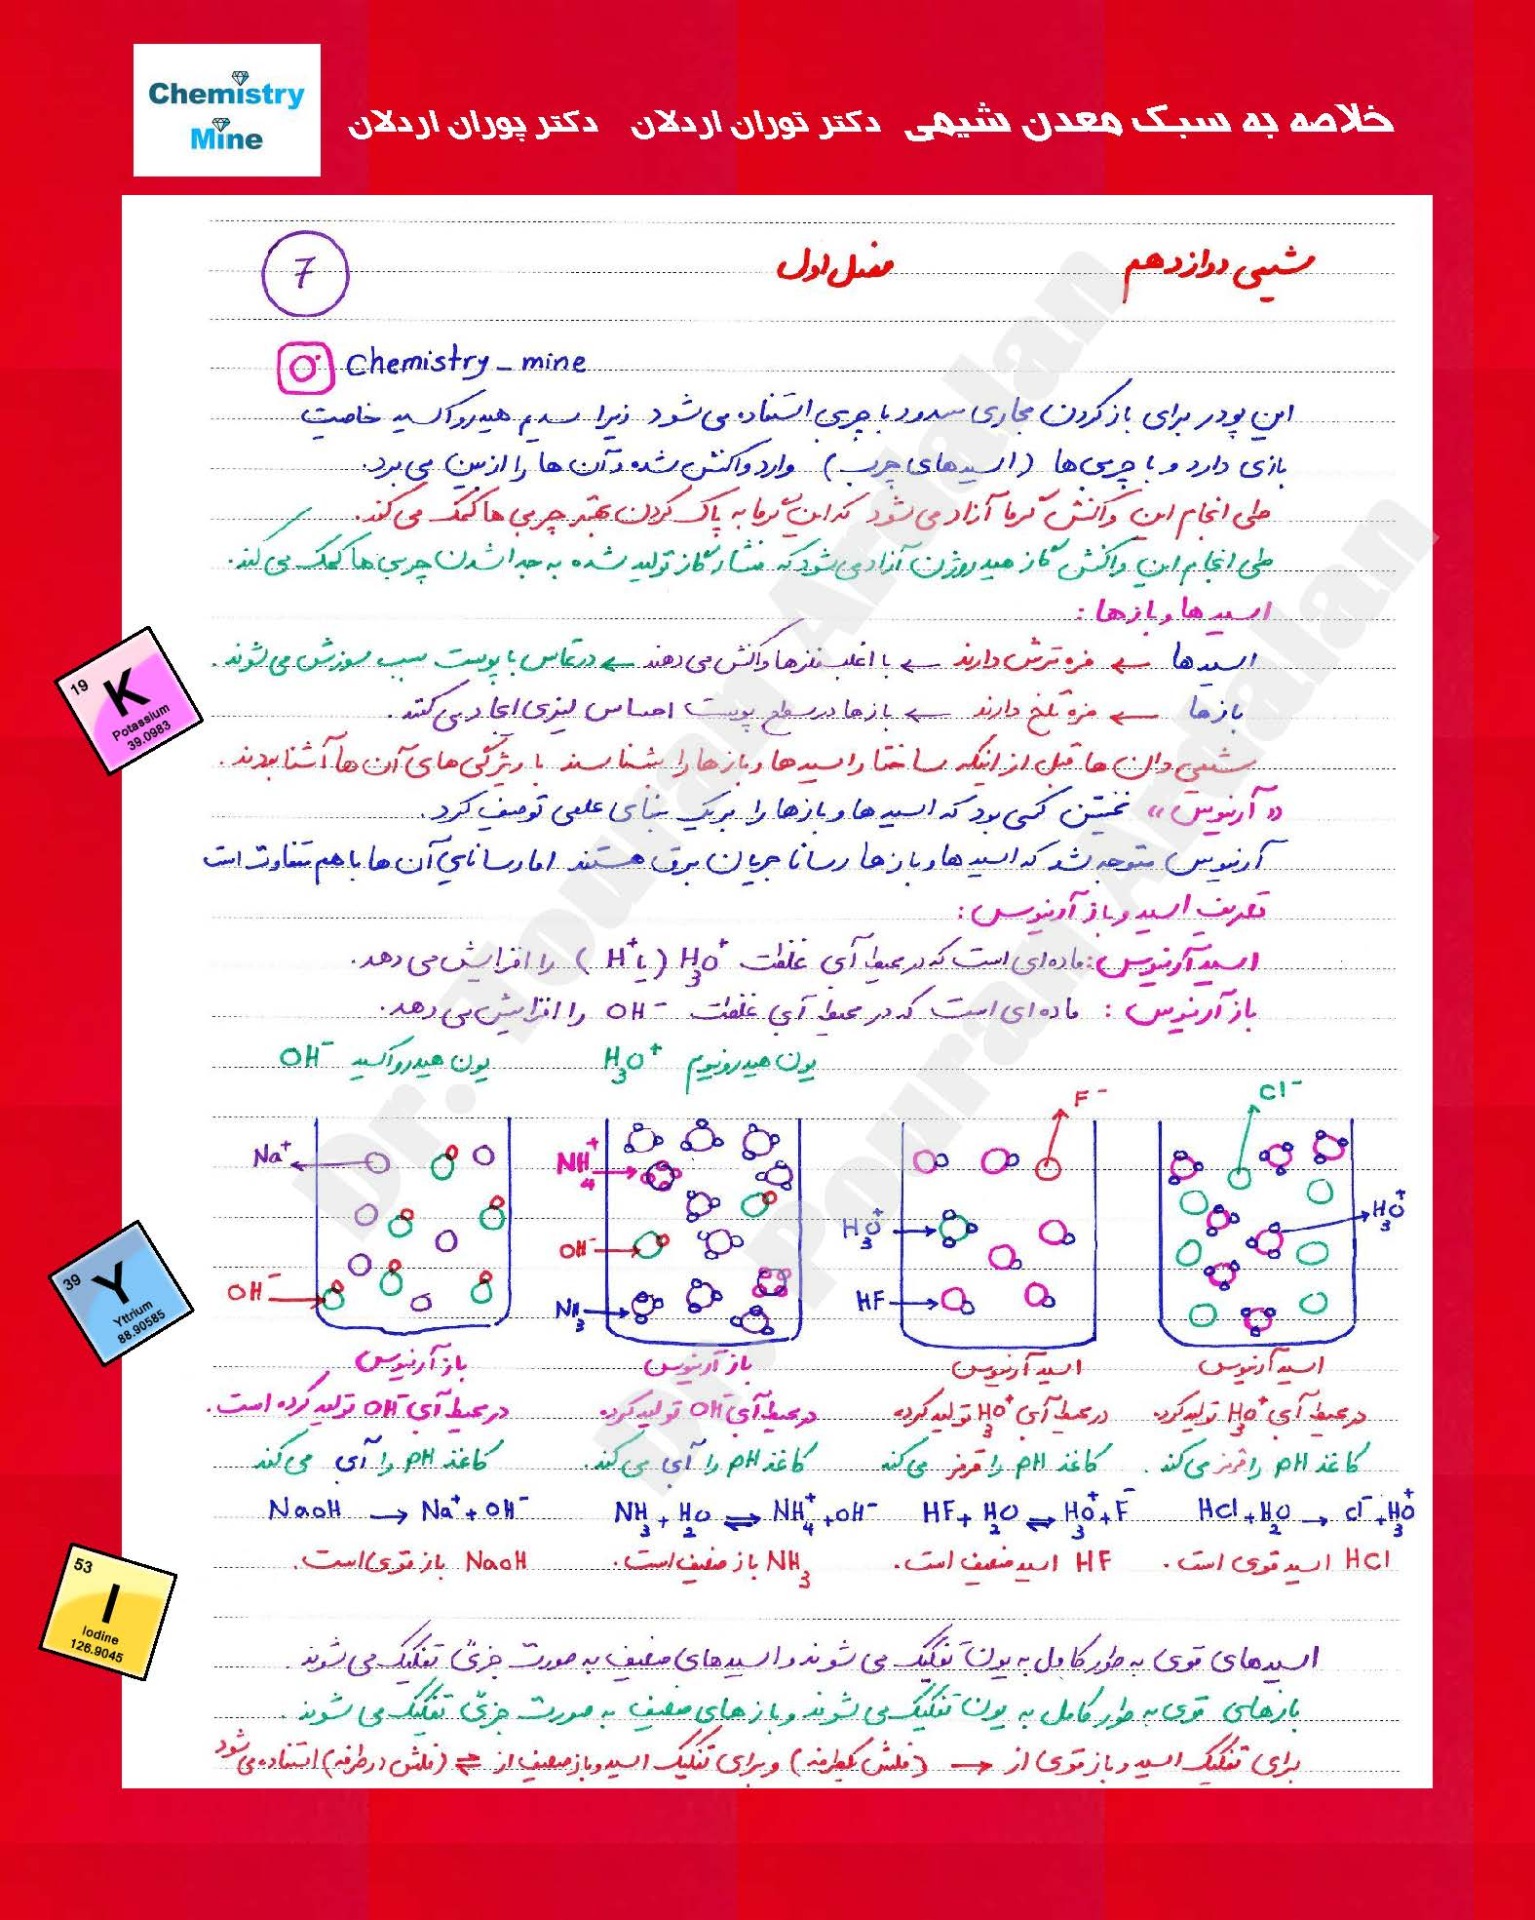 Chemistry
Mine
خلاصه به سبک معدن شیمی دکتر توران اردلان دکتر پوران اردلان
شیمی دوازدهم فصل اول 7
Chemistry_mine
این پودر برای باز کردن مجاری مسدود با چربی استفاده می شود زیرا سدیم هیدروکسید خاصیت
بازی دارد و با چربی ها (اسیدهای چرب) وارد واکنش شده و آن ها را از بین می برد.
طی انجام این واکنش گرما آزاد می شود که این گرما به پاک کردن بهتر چربی ها کمک می کند.
طی انجام این واکنش گاز هیدروژن آزاد می شود که فشار گاز تولید شده به جدا شدن چربی ها کمک می کند.
اسید ها و بازها :
اسید ها ← مزه ترش دارند ← با اغلب فلزها واکنش می دهند ← در تماس با پوست سبب سوزش می شوند.
بازها ← مزه تلخ دارند ← بازها در سطح پوست احساس لیزی ایجاد می کنند.
شیمی دان ها قبل از اینکه ساختار اسید ها و بازها را بشناسند با ویژگی های آن ها آشنا بودند.
« آرنیوس » نخستین کسی بود که اسید ها و بازها را بر یک مبنای علمی توصیف کرد.
آرنیوس متوجه شد که اسید ها و بازها رسانا جریان برق هستند اما رسانایی آن ها با هم متفاوت است
تعریف اسید و باز آرنیوس:
اسید آرنیوس: ماده ای است که در محیط آبی غلظت H₃O⁺ (یا H⁺) را افزایش می دهد.
باز آرنیوس : ماده ای است که در محیط آبی غلظت OH⁻ را افزایش می دهد.
یون هیدرونیوم H₃O⁺ یون هیدروکسید OH⁻
Cl⁻
H₃O⁺
F⁻
H₃O⁺
HF
NH₄⁺
OH⁻
NH₃
Na⁺
OH⁻
اسید آرنیوس اسید آرنیوس باز آرنیوس باز آرنیوس
در محیط آبی H₃O⁺ تولید کرده در محیط آبی H₃O⁺ تولید کرده در محیط آبی OH⁻ تولید کرده در محیط آبی OH⁻ تولید کرده است.
کاغذ pH را قرمز می کند. کاغذ pH را قرمز می کند کاغذ pH را آبی می کند. کاغذ pH را آبی می کند
HCl + H₂O → Cl⁻ + H₃O⁺ HF + H₂O ⇌ H₃O⁺ + F⁻ NH₃ + H₂O ⇌ NH₄⁺ + OH⁻ NaOH → Na⁺ + OH⁻
HCl اسید قوی است. HF اسید ضعیف است. NH₃ باز ضعیف است. NaOH باز قوی است.
اسیدهای قوی به طور کامل به یون تفکیک می شوند و اسیدهای ضعیف به صورت جزئی تفکیک می شوند.
بازهای قوی به طور کامل به یون تفکیک می شوند و بازهای ضعیف به صورت جزئی تفکیک می شوند.
برای تفکیک اسید و باز قوی از → (فلش یکطرفه) و برای تفکیک اسید و باز ضعیف از ⇌ (فلش دو طرفه) استفاده می شود
19
K
Potassium
39.0983
39
Y
Yttrium
88.90585
53
I
Iodine
126.9045
Dr. Touran Ardalan
Dr. Pouran Ardalan